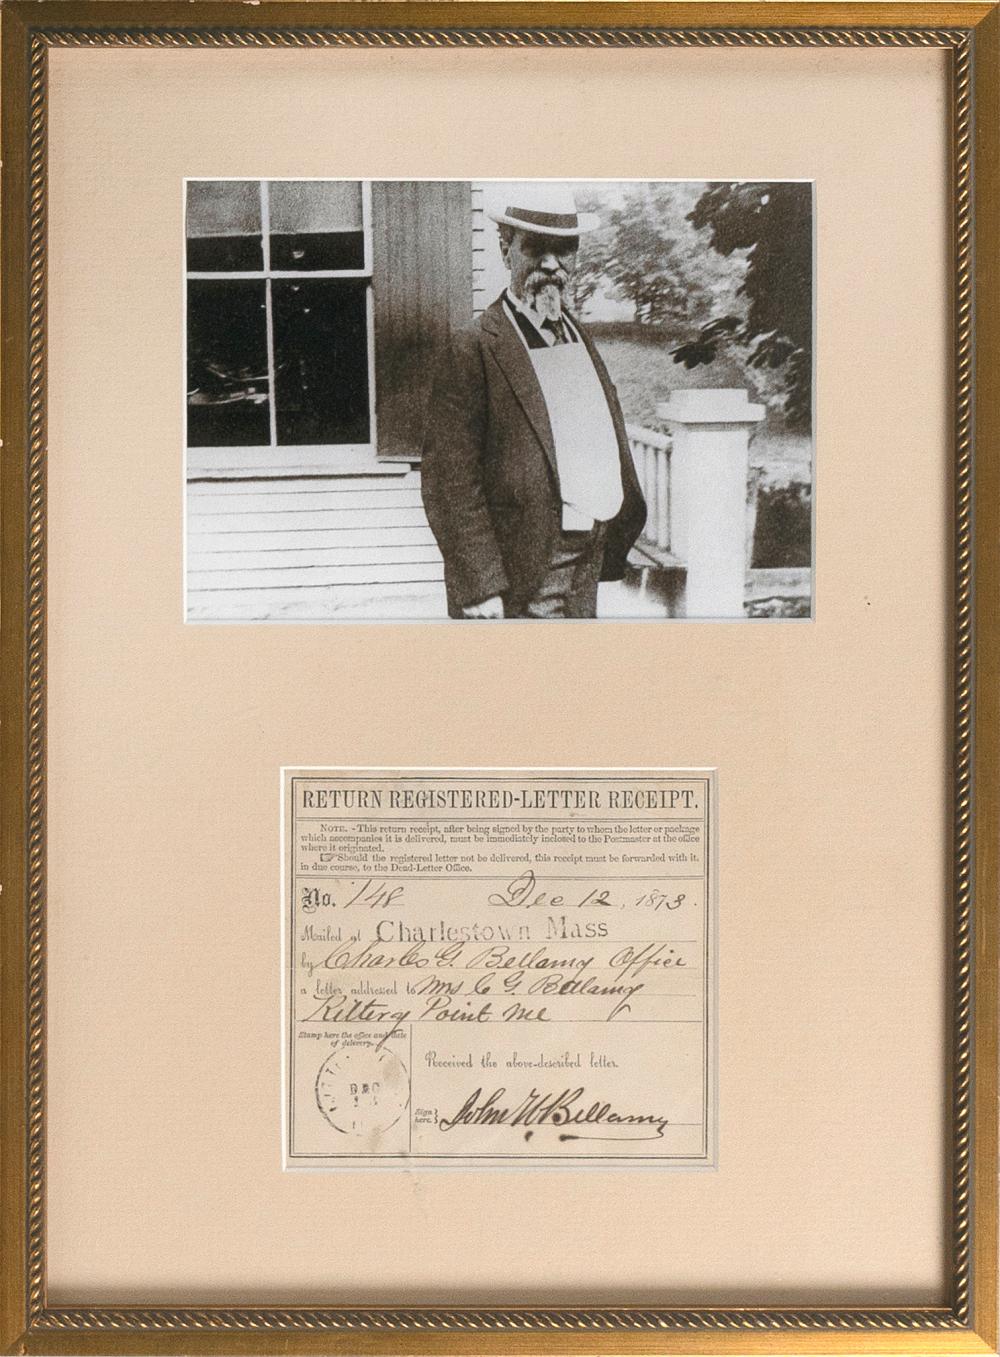 RETURN REGISTERED-LETTER RECEIPT.
NOTE. -This return receipt, after being signed by the party to whom the letter or package
which accompanies it is delivered, must be immediately inclosed to the Postmaster at the office
where it originated.
☞Should the registered letter not be delivered, this receipt must be forwarded with it,
in due course, to the Dead-Letter Office.
No. 148 Dec 12, 1873.
Mailed at Charlestown Mass
by Charles G. Bellamy Office
a letter addressed to Mrs C G. Bellamy
Kittery Point Me
Stamp here the office and date
of delivery.
DEC
Received the above-described letter.
Sign
here.
John H Bellamy